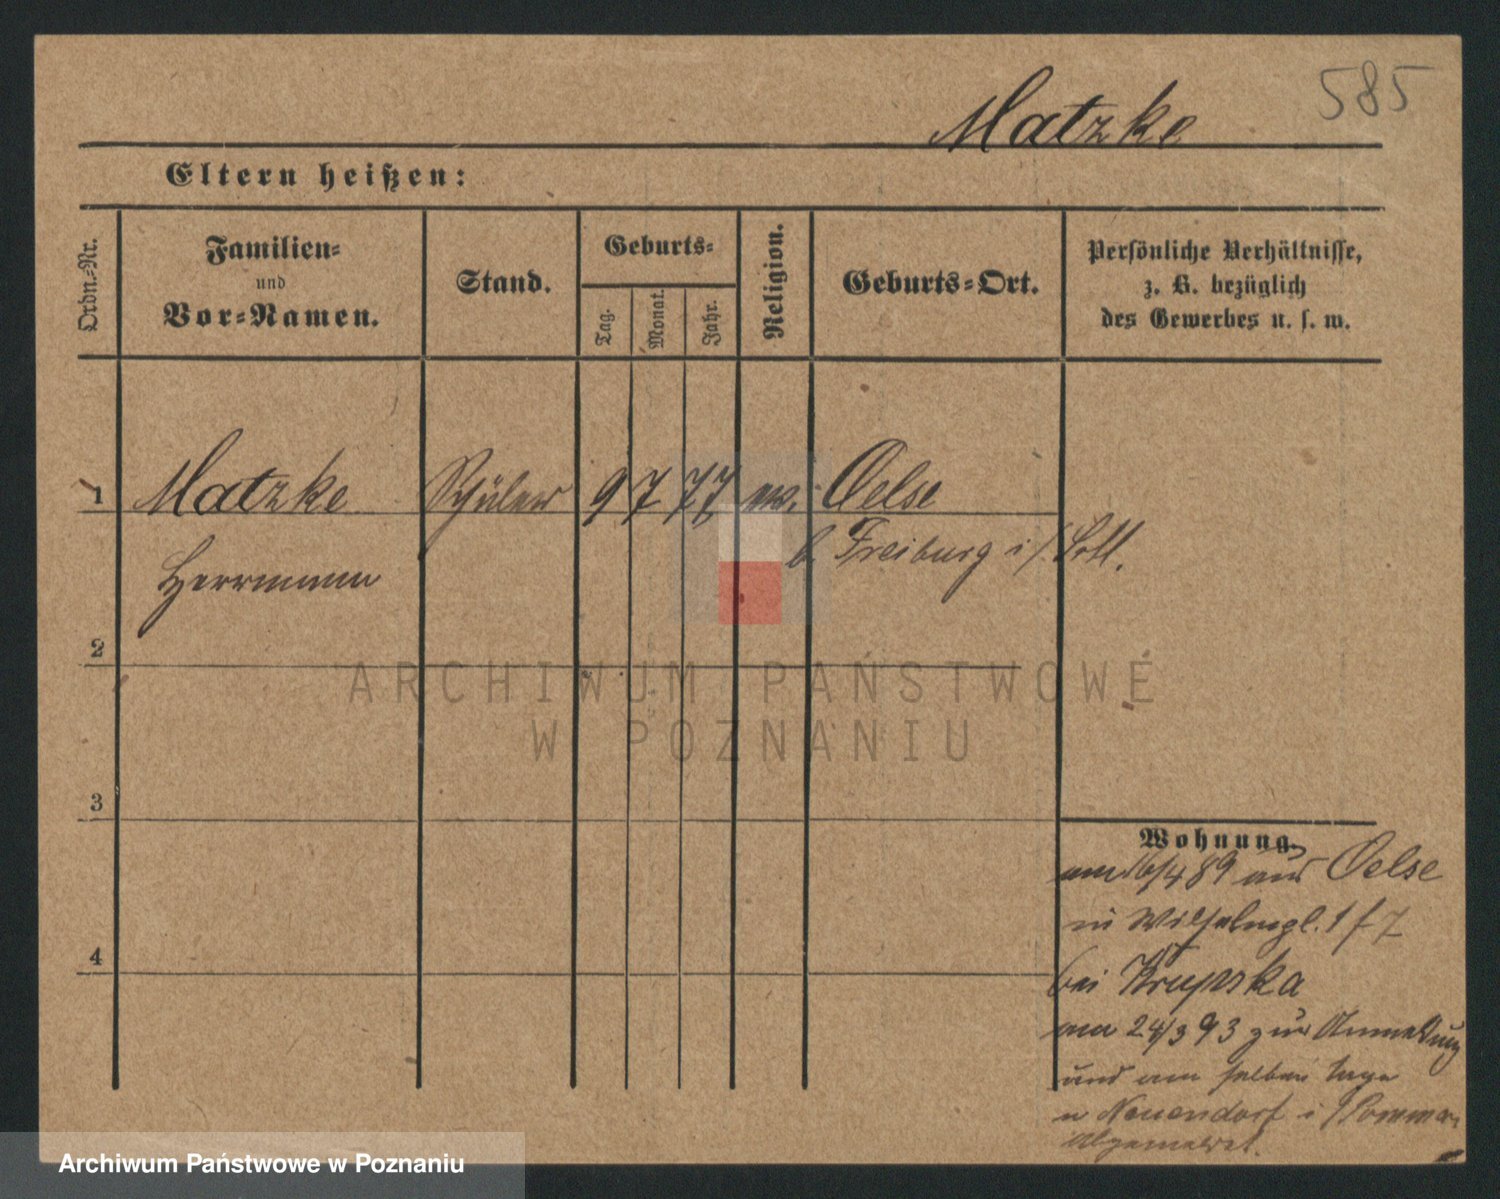 585
Matzke
Eltern heißen:
Ordn.-Nr.
Familien-
und
Vor-Namen.
Stand.
Geburts-
Tag.
Monat.
Jahr.
Religion.
Geburts-Ort.
Persönliche Verhältnisse,
z. B. bezüglich
des Gewerbes u. s. w.
1 Matzke Schüler 9 7 77 ev. Oelse
b. Freiburg i/ Schl.
Herrmann
2
ARCHIWUM PAŃSTWOWE
W POZNANIU
3
4
Wohnung.
am 16/4 89 aus Oelse
in Wilhelmspl. 1
bei Krupska
am 24/3 93 zur Anmeldung
und am selben Tage
n Neuendorf i Pommern
abgemeldet.
Archiwum Państwowe w Poznaniu